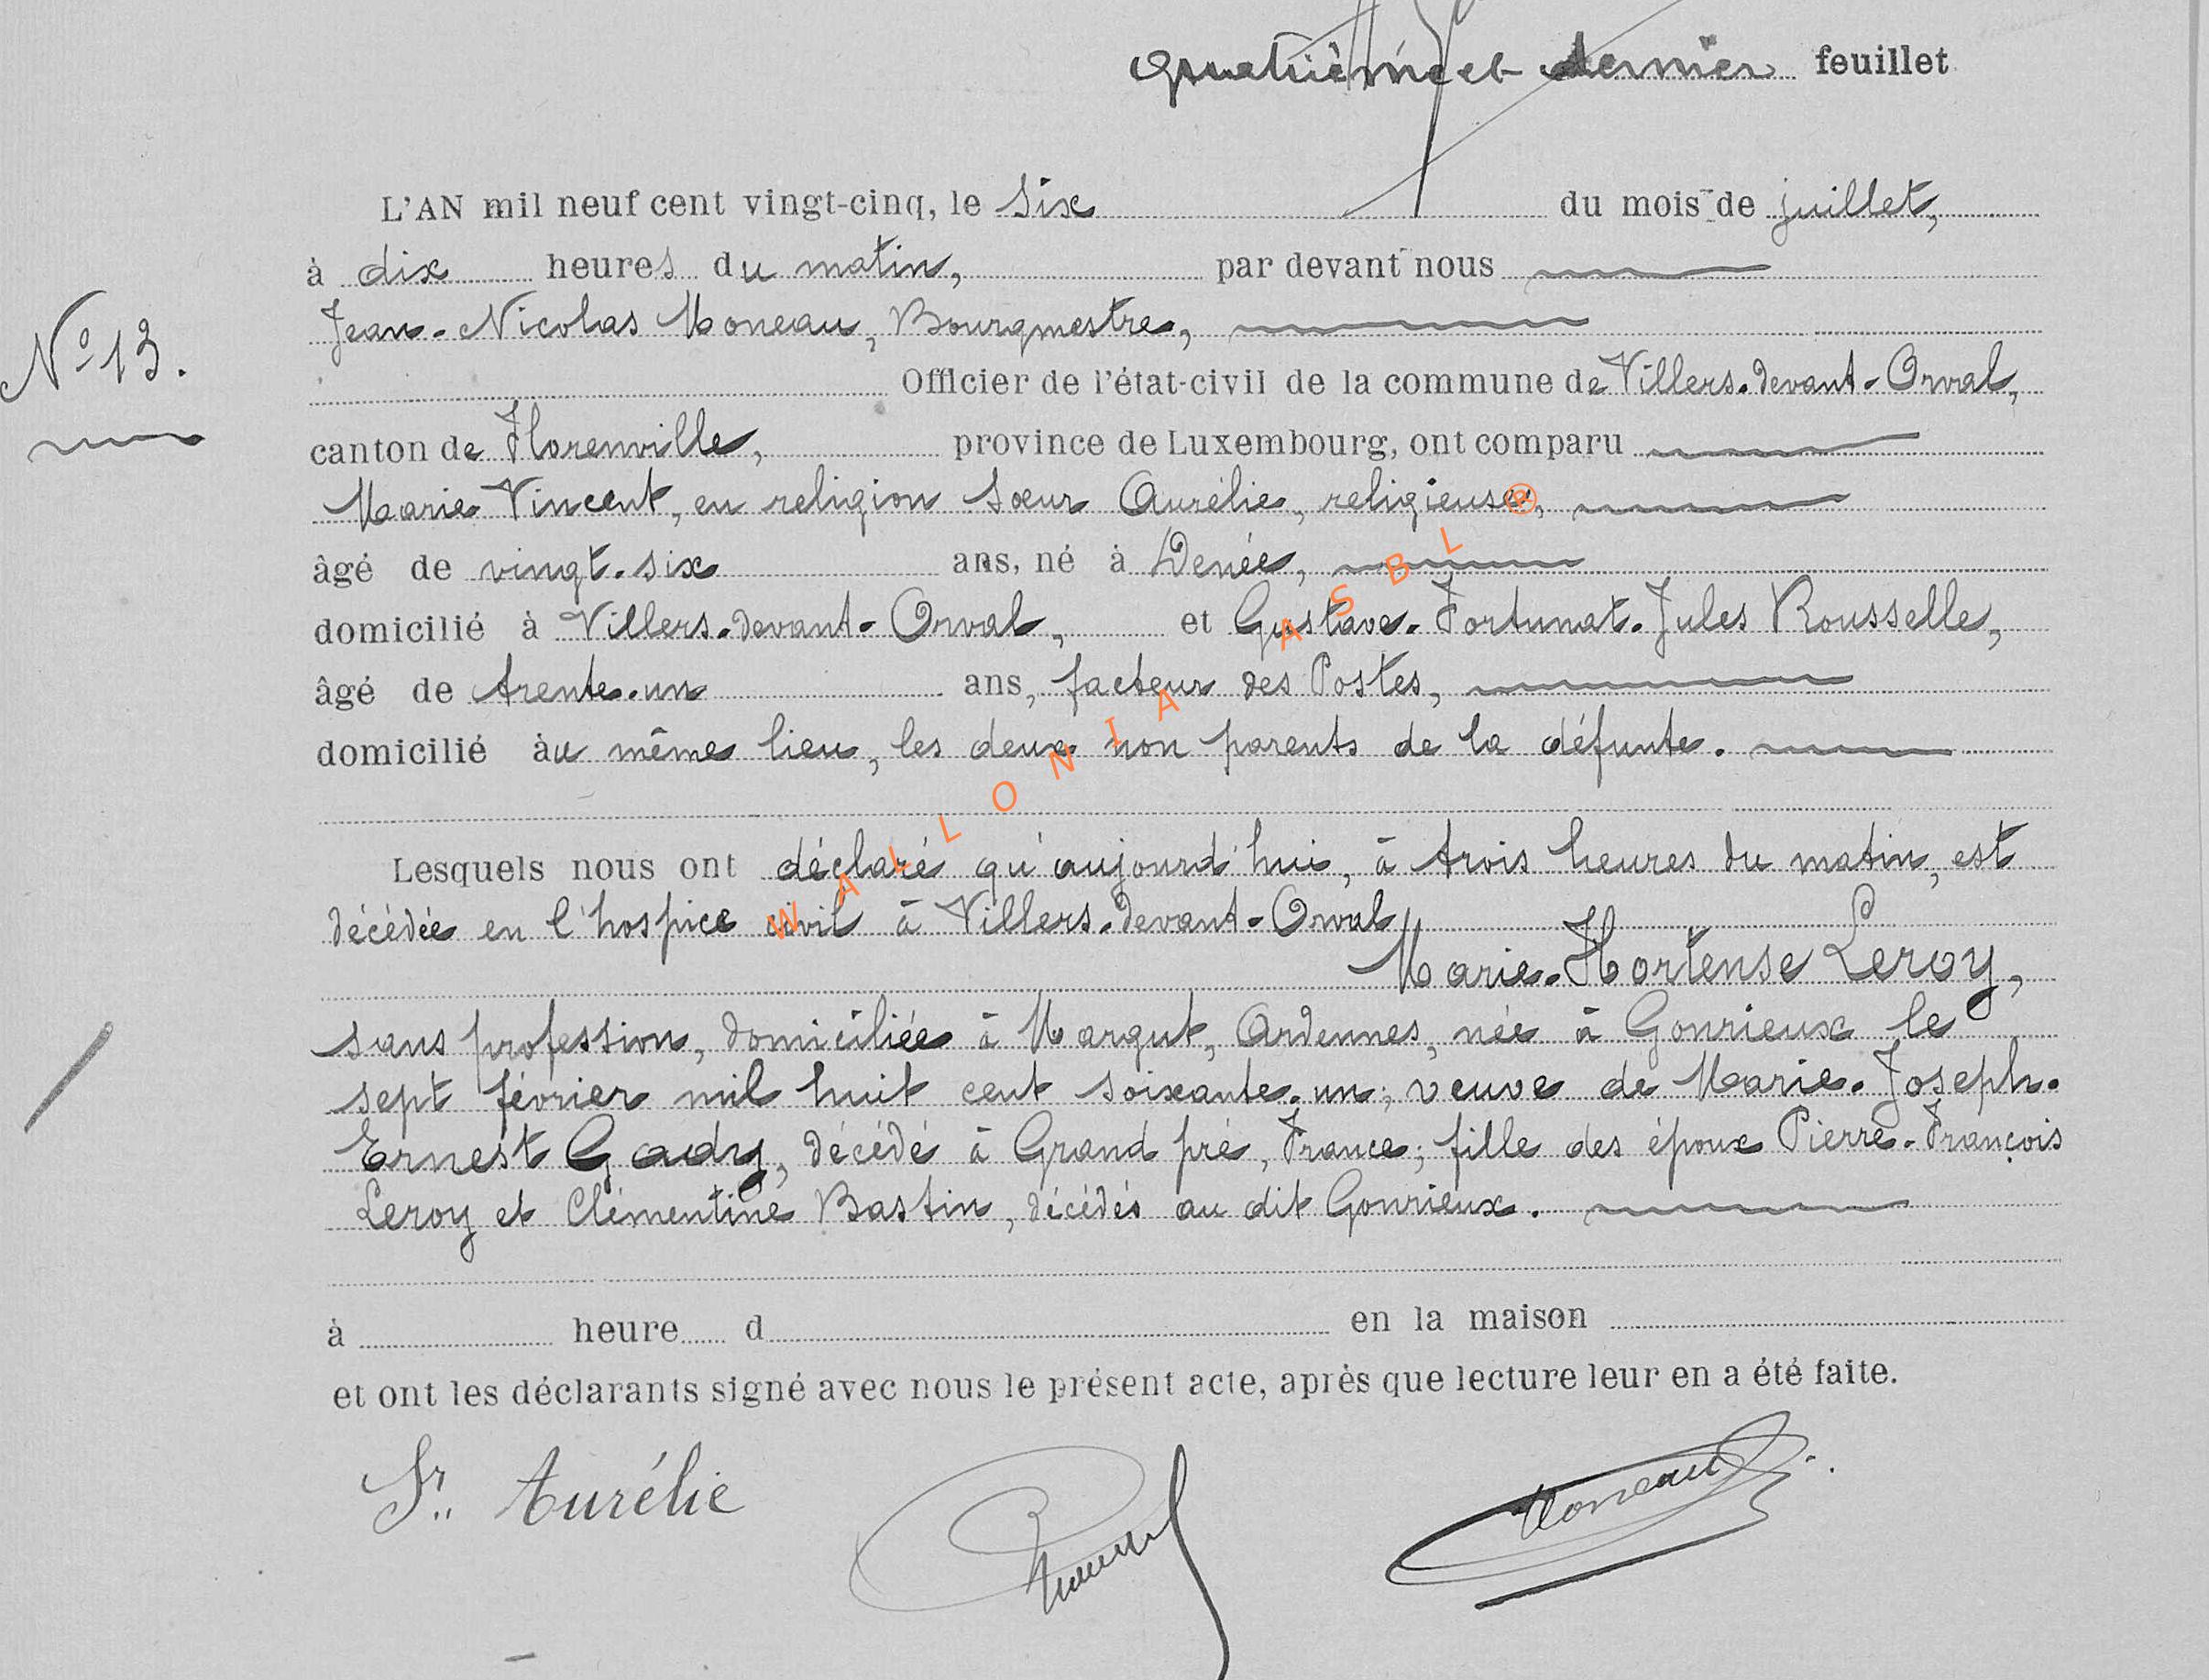 quatrième et dernier feuillet
L'AN mil neuf cent vingt-cinq, le six du mois de juillet,
à dix heures du matin, par devant nous
Jean-Nicolas Moneau, Bourgmestre,
N° 13.
Officier de l'état-civil de la commune de Villers-devant-Orval,
canton de Florenville, province de Luxembourg, ont comparu
Marie Vincent, en religion Sœur Aurélie, religieuse,
âgé de vingt-six ans, né à Denée,
domicilié à Villers-devant-Orval, et Gustave-Fortunat-Jules Rousselle,
âgé de trente-un ans, facteur des Postes,
domicilié au même lieu, les deux non parents de la défunte.
Lesquels nous ont déclaré qu'aujourd'hui, à trois heures du matin, est
décédée en l'hospice civil à Villers-devant-Orval
Marie-Hortense Leroy,
sans profession, domiciliée à Margut, Ardennes, née à Gonrieux le
sept février mil huit cent soixante-un; veuve de Marie-Joseph-
Ernest Gady, décédé à Grand pré, France; fille des époux Pierre-François
Leroy et Clémentine Bastin, décédés au dit Gonrieux.
à heure d en la maison
et ont les déclarants signé avec nous le présent acte, après que lecture leur en a été faite.
Sr. Aurélie Moneau
WALLONIA ASBL ®